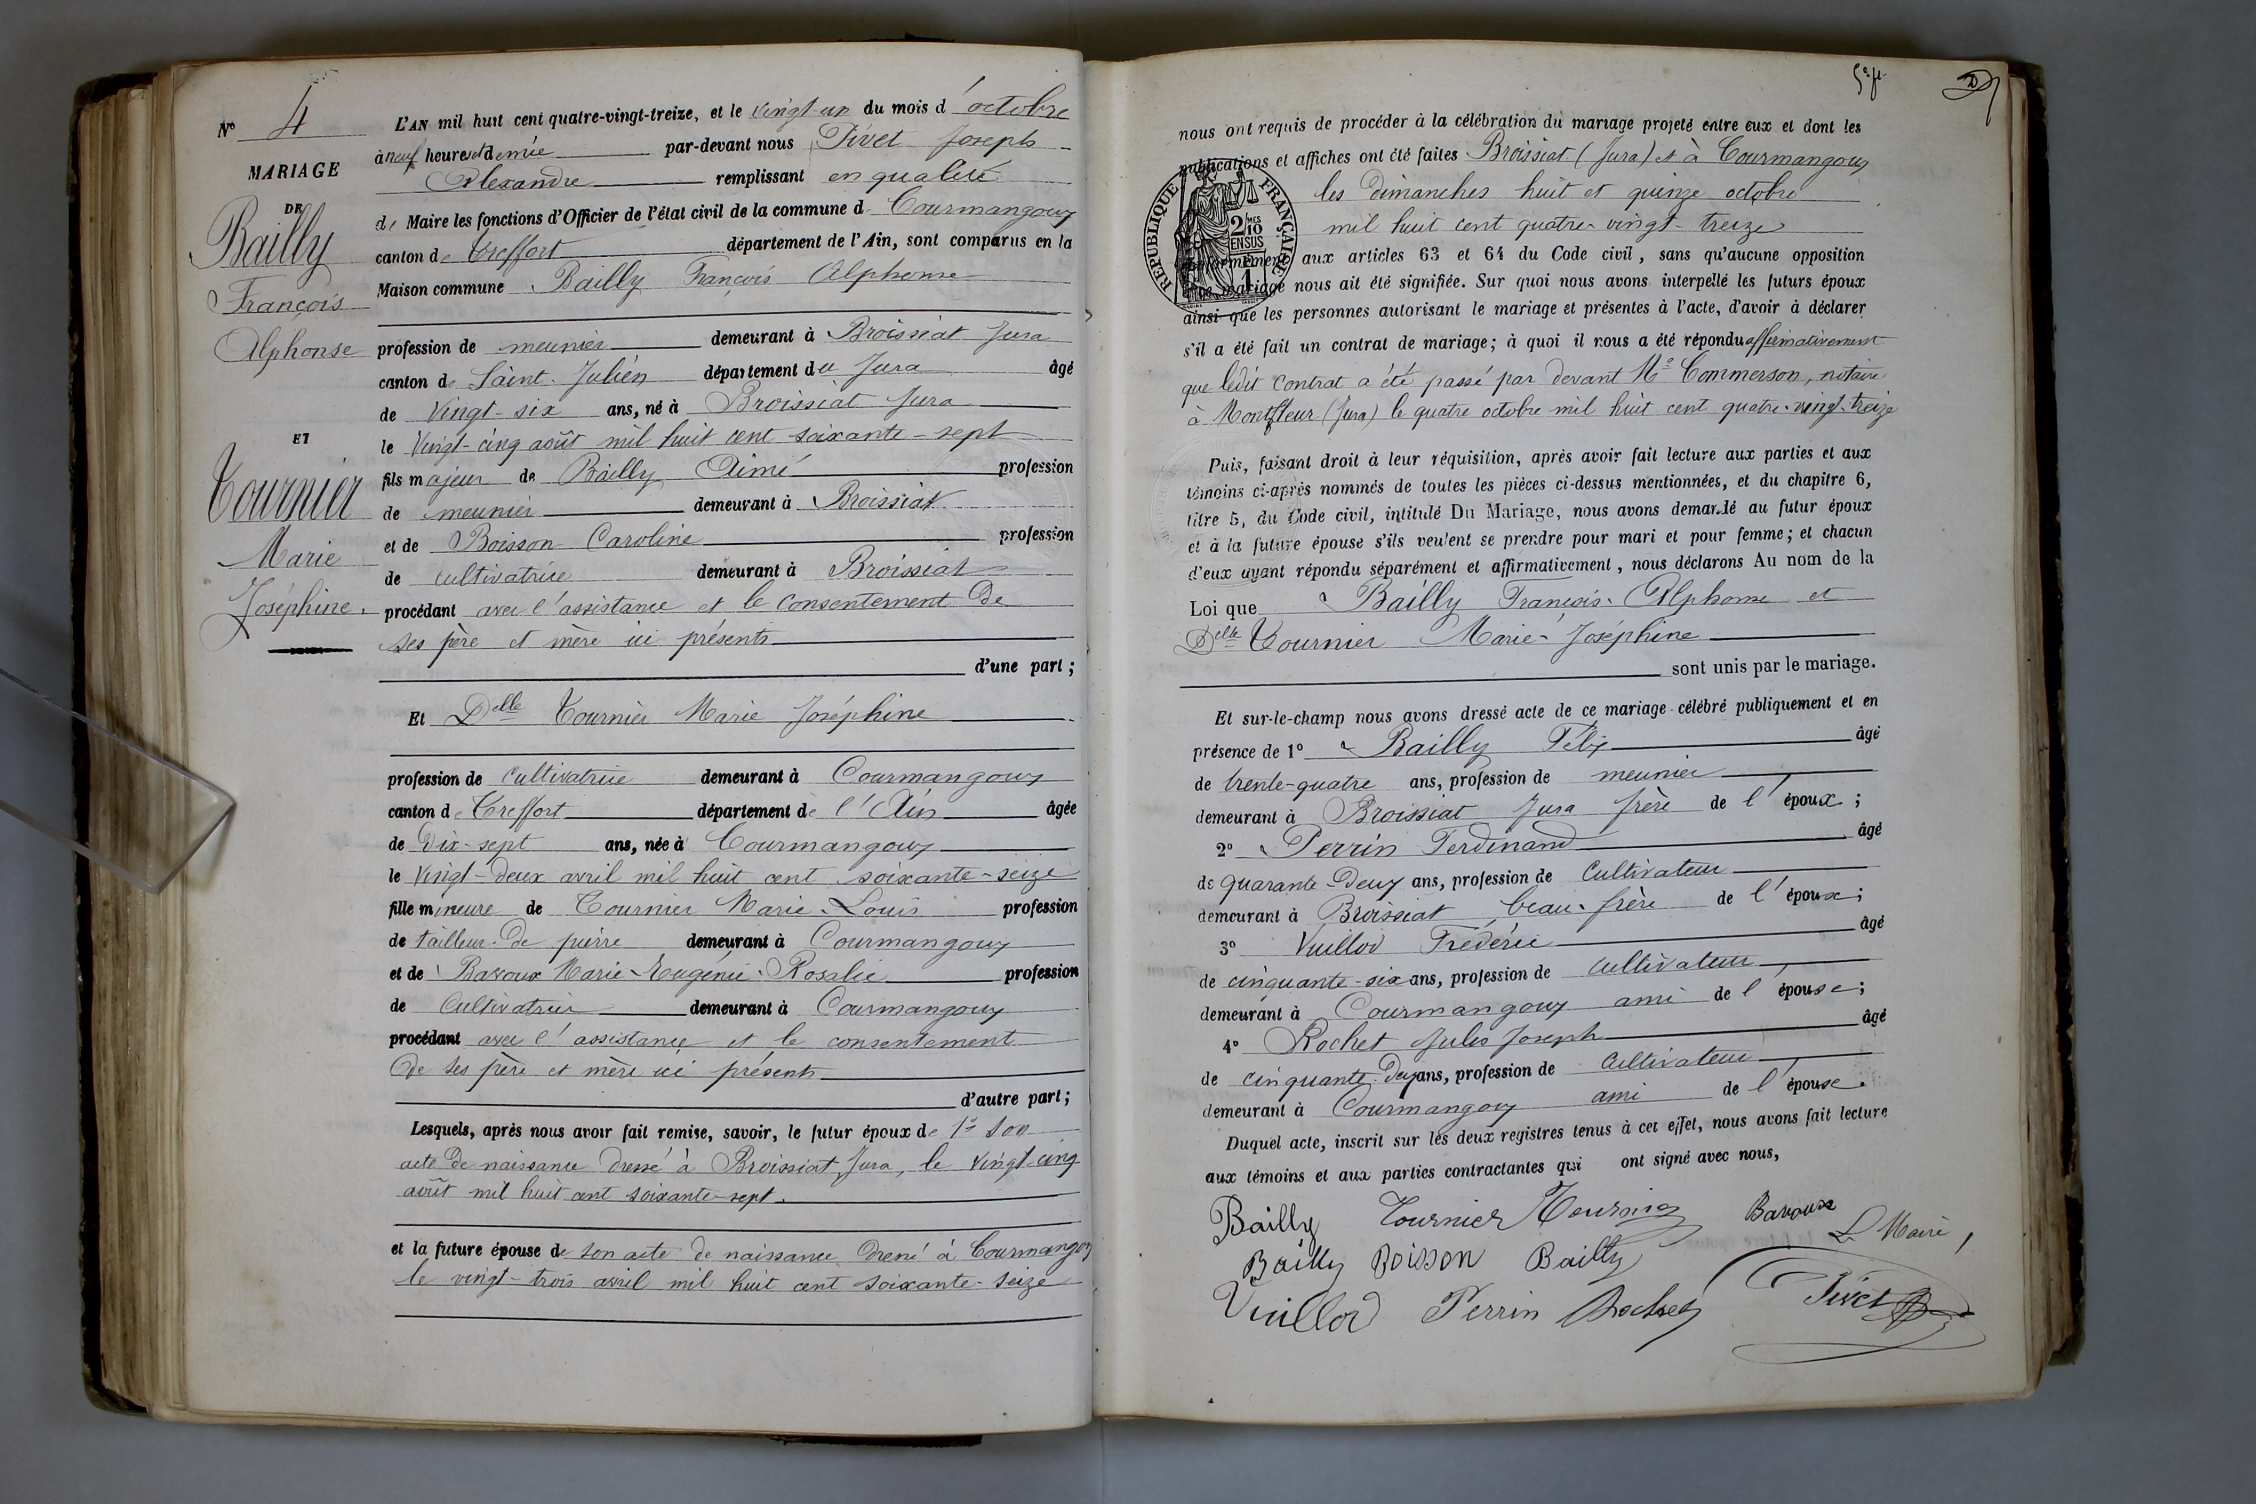 N° 4
MARIAGE
DE
Bailly
François
Alphonse
ET
Tournier
Marie
Joséphine.
L'AN mil huit cent quatre-vingt-treize, et le vingt-un du mois d'octobre
à neuf heures et demie par-devant nous Pivet Joseph
Alexandre remplissant en qualité
de Maire les fonctions d'Officier de l'état civil de la commune d Courmangoux
canton de Treffort département de l'Ain, sont comparus en la
Maison commune Bailly François Alphonse
profession de meunier demeurant à Broissiat Jura
canton de Saint-Julien département du Jura âgé
de vingt-six ans, né à Broissiat Jura
le vingt-cinq août mil huit cent soixante-sept
fils majeur de Bailly Aimé profession
de meunier demeurant à Broissiat
et de Boisson Caroline profession
de cultivatrice demeurant à Broissiat
procédant avec l'assistance et le consentement de
ses père et mère ici présents
d'une part;
Et Delle Tournier Marie Joséphine
profession de cultivatrice demeurant à Courmangoux
canton de Treffort département de l'Ain âgée
de dix-sept ans, née à Courmangoux
le vingt-deux avril mil huit cent soixante-seize
fille mineure de Tournier Marie-Louis profession
de tailleur de pierre demeurant à Courmangoux
et de Bavoux Marie-Eugénie-Rosalie profession
de cultivatrice demeurant à Courmangoux
procédant avec l'assistance et le consentement
de ses père et mère ici présents
d'autre part;
Lesquels, après nous avoir fait remise, savoir, le futur époux de 1° son
acte de naissance dressé à Broissiat Jura, le vingt-cinq
août mil huit cent soixante-sept.
et la future épouse de son acte de naissance dressé à Courmangoux
le vingt-trois avril mil huit cent soixante-seize
nous ont requis de procéder à la célébration du mariage projeté entre eux et dont les
publications et affiches ont été faites Broissiat (Jura) et à Courmangoux
les dimanches huit et quinze octobre
mil huit cent quatre-vingt-treize
RÉPUBLIQUE FRANÇAISE
2/10 EN SUS
conformément aux articles 63 et 64 du Code civil, sans qu'aucune opposition
mariage nous ait été signifiée. Sur quoi nous avons interpellé les futurs époux
ainsi que les personnes autorisant le mariage et présentes à l'acte, d'avoir à déclarer
s'il a été fait un contrat de mariage; à quoi il nous a été répondu affirmativement
que ledit contrat a été passé par devant Me Commerson, notaire
à Montfleur (Jura) le quatre octobre mil huit cent quatre-vingt-treize
Puis, faisant droit à leur réquisition, après avoir fait lecture aux parties et aux
témoins ci-après nommés de toutes les pièces ci-dessus mentionnées, et du chapitre 6,
titre 5, du Code civil, intitulé Du Mariage, nous avons demandé au futur époux
et à la future épouse s'ils veulent se prendre pour mari et pour femme; et chacun
d'eux ayant répondu séparément et affirmativement, nous déclarons Au nom de la
Loi que Bailly François-Alphonse et
Delle Tournier Marie-Joséphine
sont unis par le mariage.
Et sur-le-champ nous avons dressé acte de ce mariage célébré publiquement et en
présence de 1° Bailly Félix âgé
de trente-quatre ans, profession de meunier,
demeurant à Broissiat Jura frère de l'époux;
2° Perrin Ferdinand âgé
de quarante-deux ans, profession de cultivateur
demeurant à Broissiat, beau-frère de l'époux;
3° Vuillod Frédéric âgé
de cinquante-six ans, profession de cultivateur,
demeurant à Courmangoux ami de l'épouse;
4° Rochet Jules Joseph âgé
de cinquante-deux ans, profession de cultivateur,
demeurant à Courmangoux ami de l'épouse.
Duquel acte, inscrit sur les deux registres tenus à cet effet, nous avons fait lecture
aux témoins et aux parties contractantes qui ont signé avec nous,
Bailly Tournier Tournier Bavoux
L. Maire,
Bailly Boisson Bailly
Vuillod Perrin Rochet Pivet